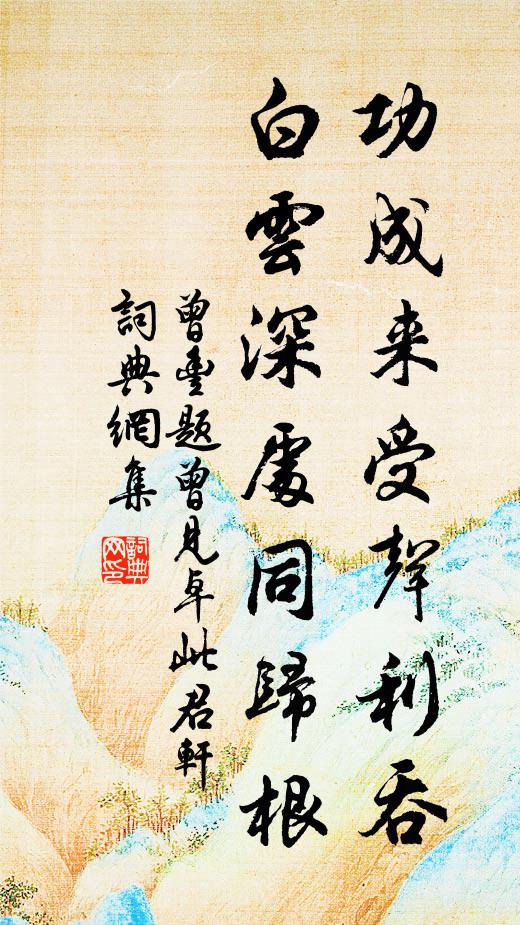 功成来受聲利吞
白雲深處同歸根
曾豊題曾見卓此君軒
詞典網集
詞典
网印